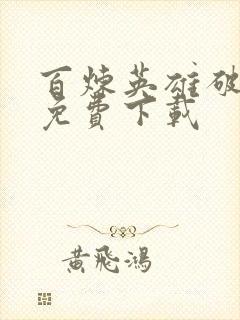 百煉英雄破
免費下載
黃飛鴻